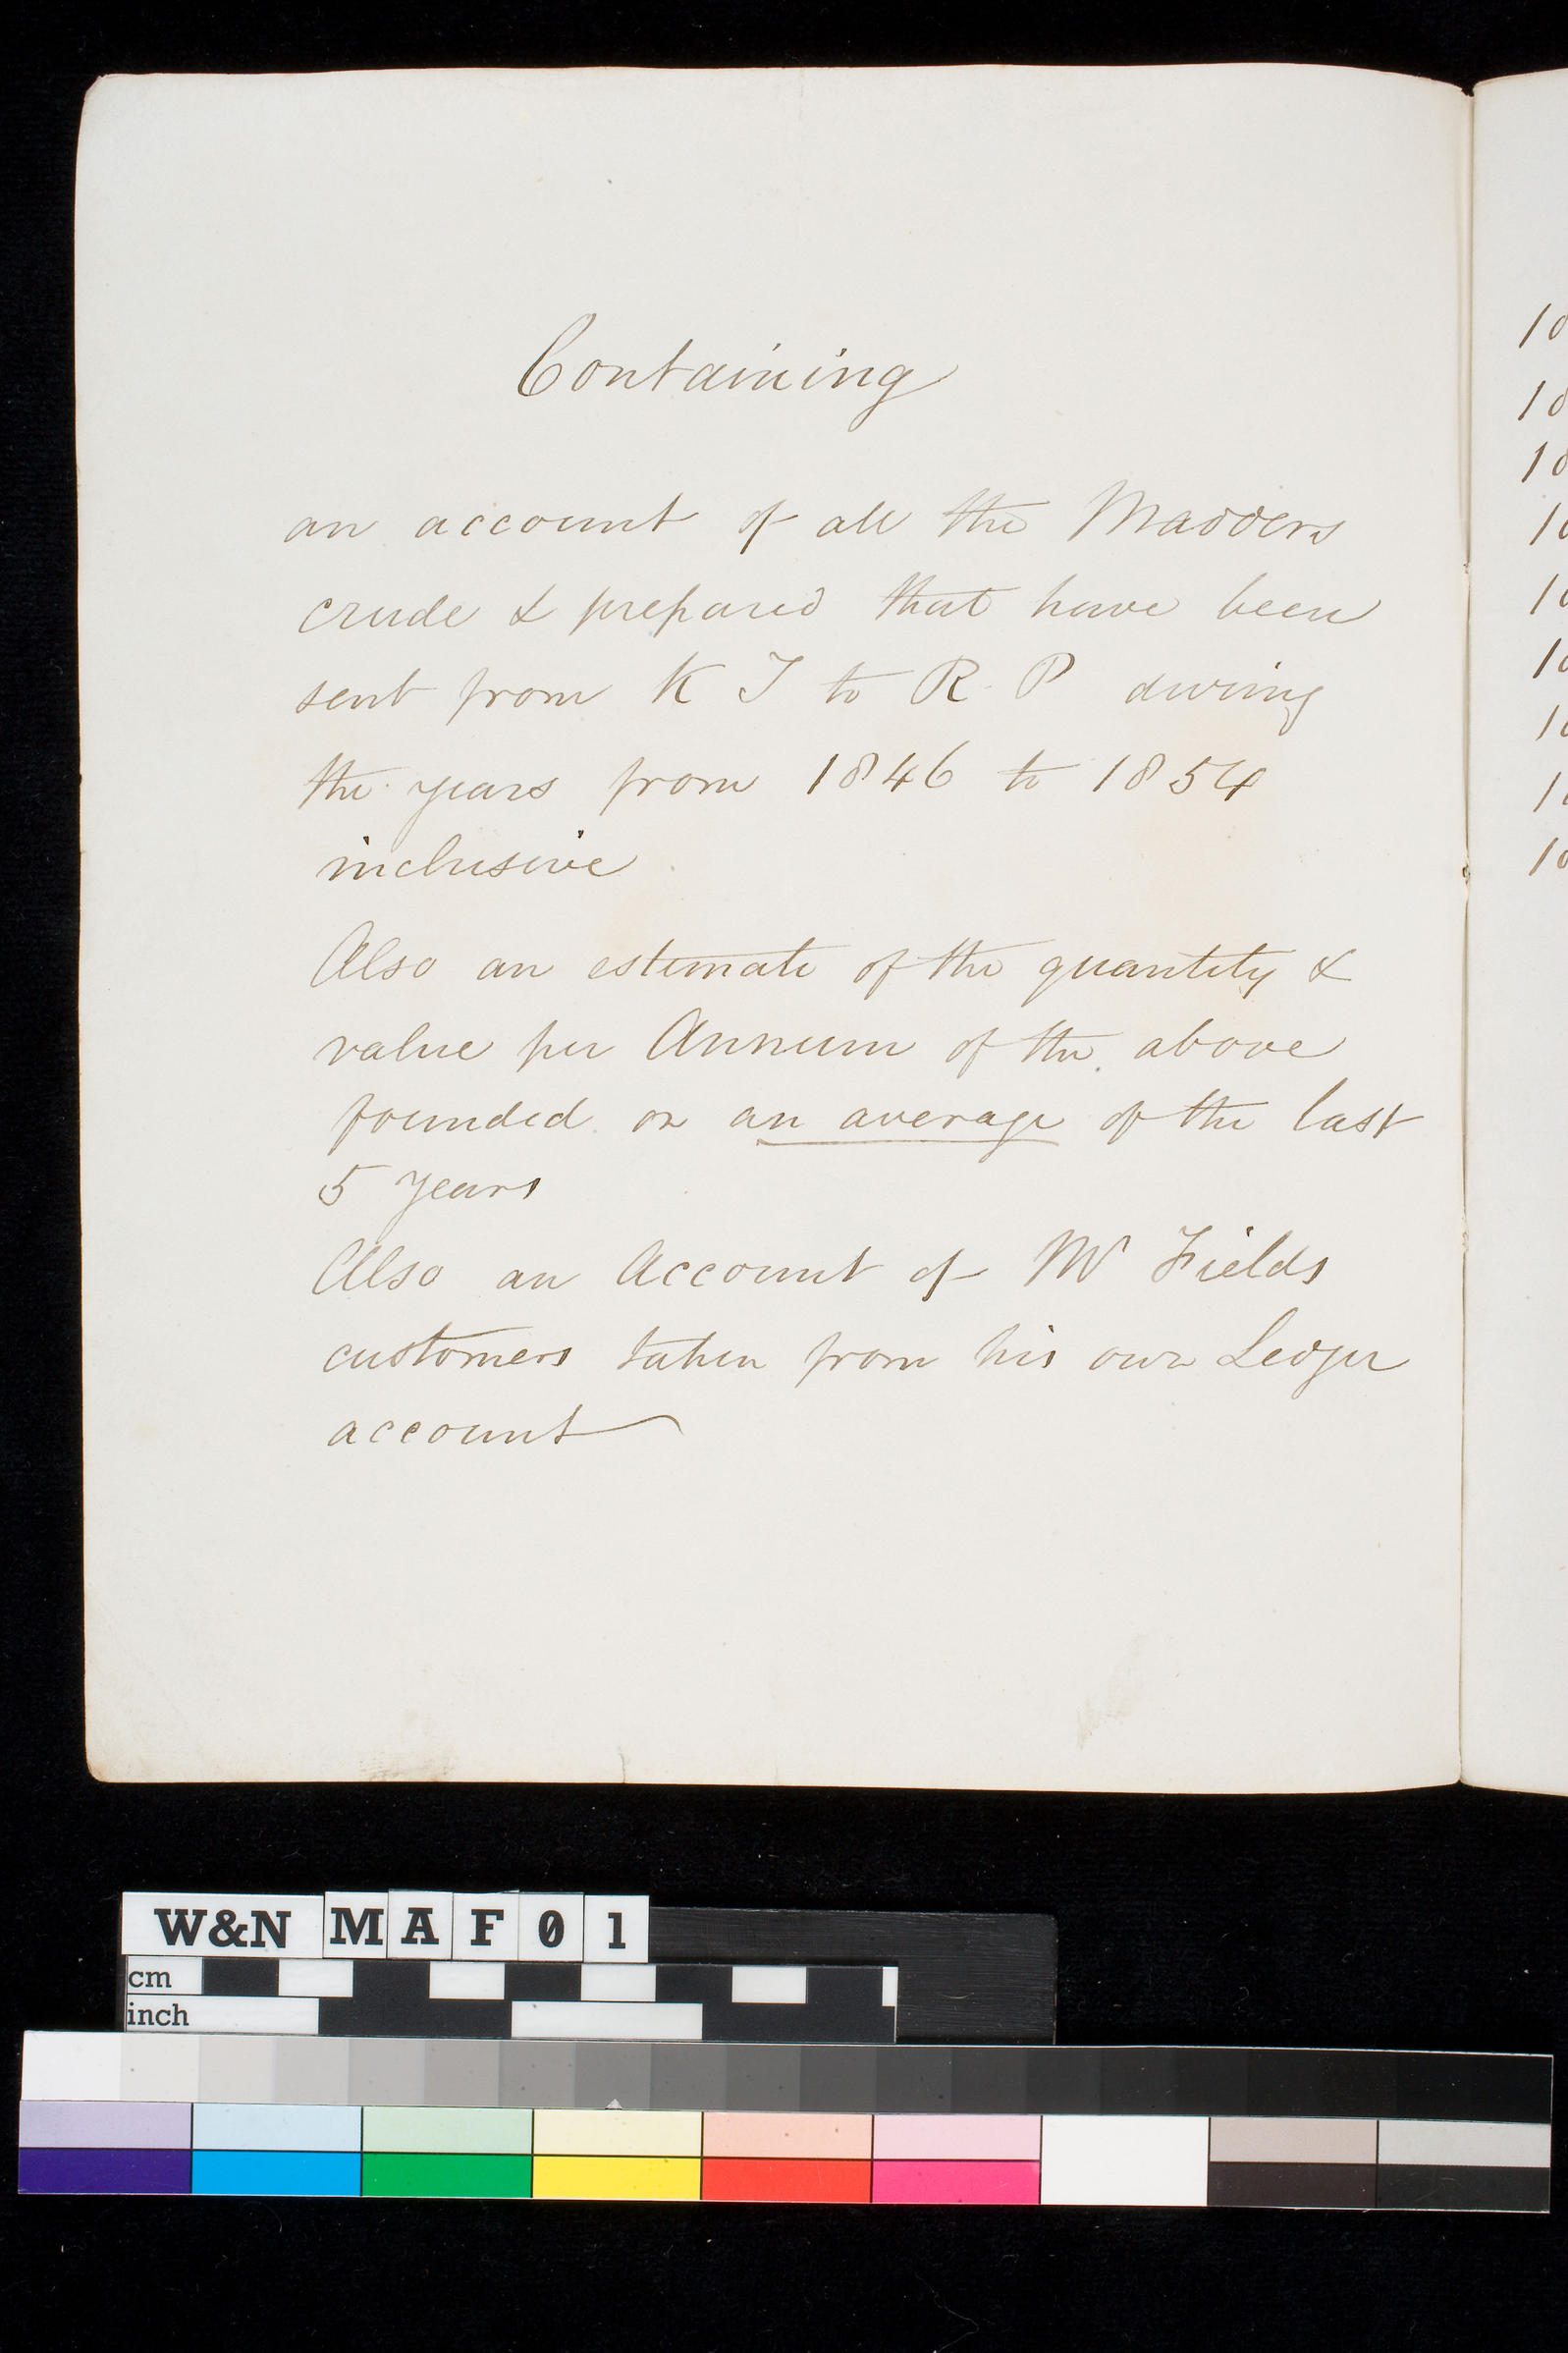 Containing
an account of all the Madders
crude & prepared that have been
sent from K T to R. P during
the years from 1846 to 1854
inclusive
Also an estimate of the quantity &
value per Annum of the above
founded on an average of the last
5 years
Also an Account of Mr Fields
customers taken from his own Ledger
account
W&N MAF01
cm
inch